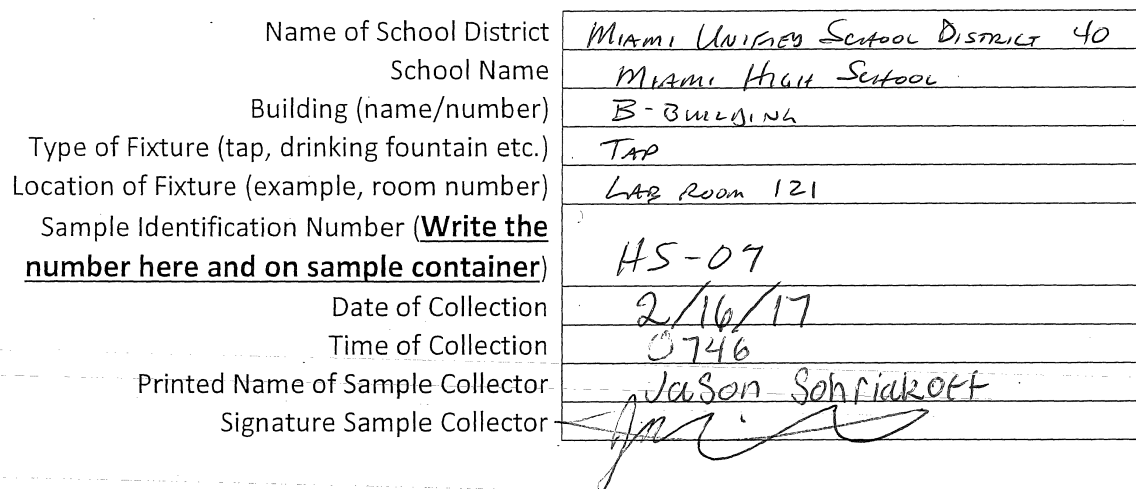 Name of School District Miami Unified School District 40
School Name Miami High School
Building (name/number) B-Building
Type of Fixture (tap, drinking fountain etc.) Tap
Location of Fixture (example, room number) Lab Room 121
Sample Identification Number (Write the
number here and on sample container) HS-07
Date of Collection 2/16/17
Time of Collection 0746
Printed Name of Sample Collector Jason Sohriakoff
Signature Sample Collector